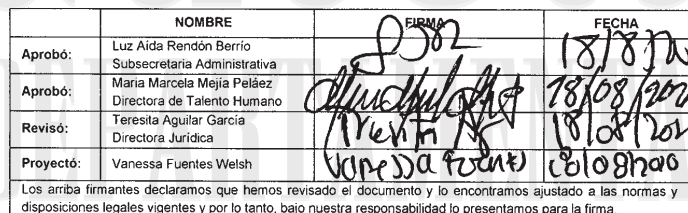 NOMBRE FIRMA FECHA
Aprobó: Luz Aida Rendón Berrío
Subsecretaria Administrativa 18/8/20
Aprobó: Maria Marcela Mejía Peláez
Directora de Talento Humano 18/08/202
Revisó: Teresita Aguilar García
Directora Jurídica 18/08/202
Proyectó: Vanessa Fuentes Welsh Vanessa Fuentes
Los arriba firmantes declaramos que hemos revisado el documento y lo encontramos ajustado a las normas y
disposiciones legales vigentes y por lo tanto, bajo nuestra responsabilidad lo presentamos para la firma.